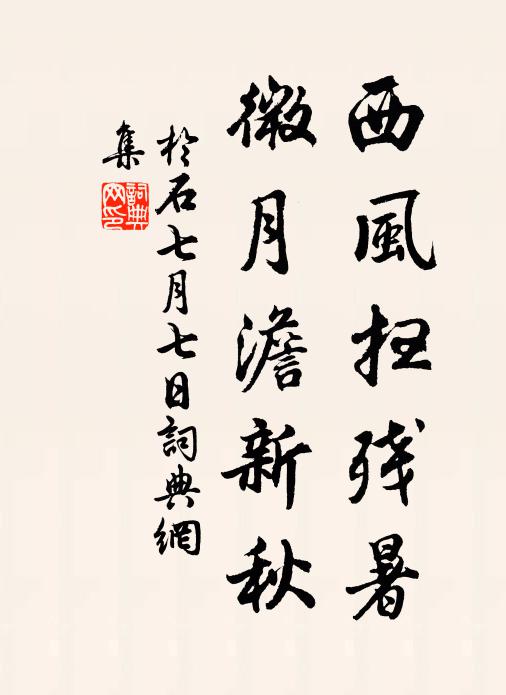 西風扫残暑
微月澹新秋
於石七月七日詞典網
集
詞典網印